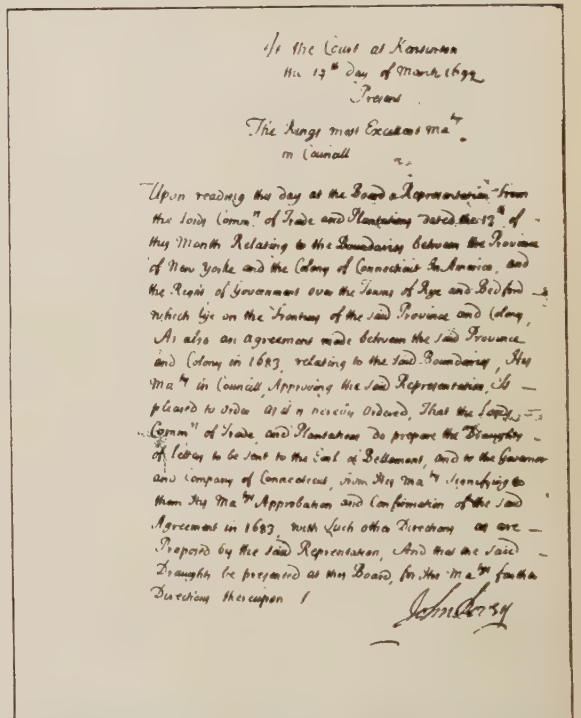 At the Court at Kensinton
the 17th day of March 1699
Present
The Kings most Excellent Maty
in Councill
Upon reading this day at the Board a Representation from
the Lords Commrs of Trade and Plantations dated the 13th of
this Month Relating to the Boundaries between the Province
of New Yorke and the Colony of Connecticut In America, and
the Right of Government over the Towns of Rye and Bedford
which lye on the Frontiers of the said Province and Colony,
As also an Agreement made between the said Province
and Colony in 1683, relating to the said Boundaries, His
Maty in Councill, Approving the said Representation, is
pleased to Order as it is herein Ordered, That the Lords
Commrs of Trade, and Plantations do prepare the Draughts
of Letters to be sent to the Earl of Bellemont, and to the Governor
and Company of Connecticut, from His Maty signifying to
them His Matys Approbation and Confirmation of the said
Agreement in 1683, with such other Directions as are
Proposed by the said Reprentation, And that the said
Draughts be presented at this Board, for His Matys further
Directions thereupon /
John Povey